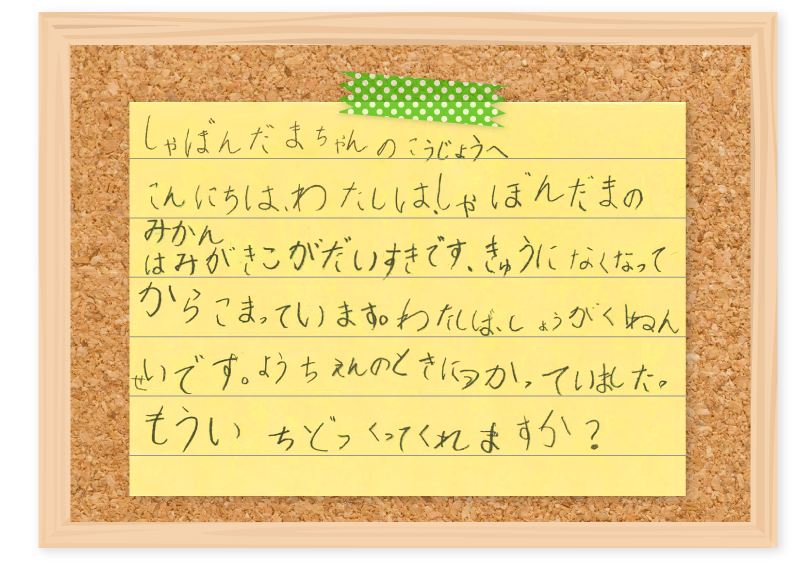 しゃぼんだまちゃんのこうじょうへ
こんにちは、わたしは、しゃぼんだまの
みかん
はみがきこがだいすきです、きゅうになくなって
からこまっています。わたしは、しょうがくねん
せいです。ようちえんのときにつかっていました。
もういちどつくってくれますか？